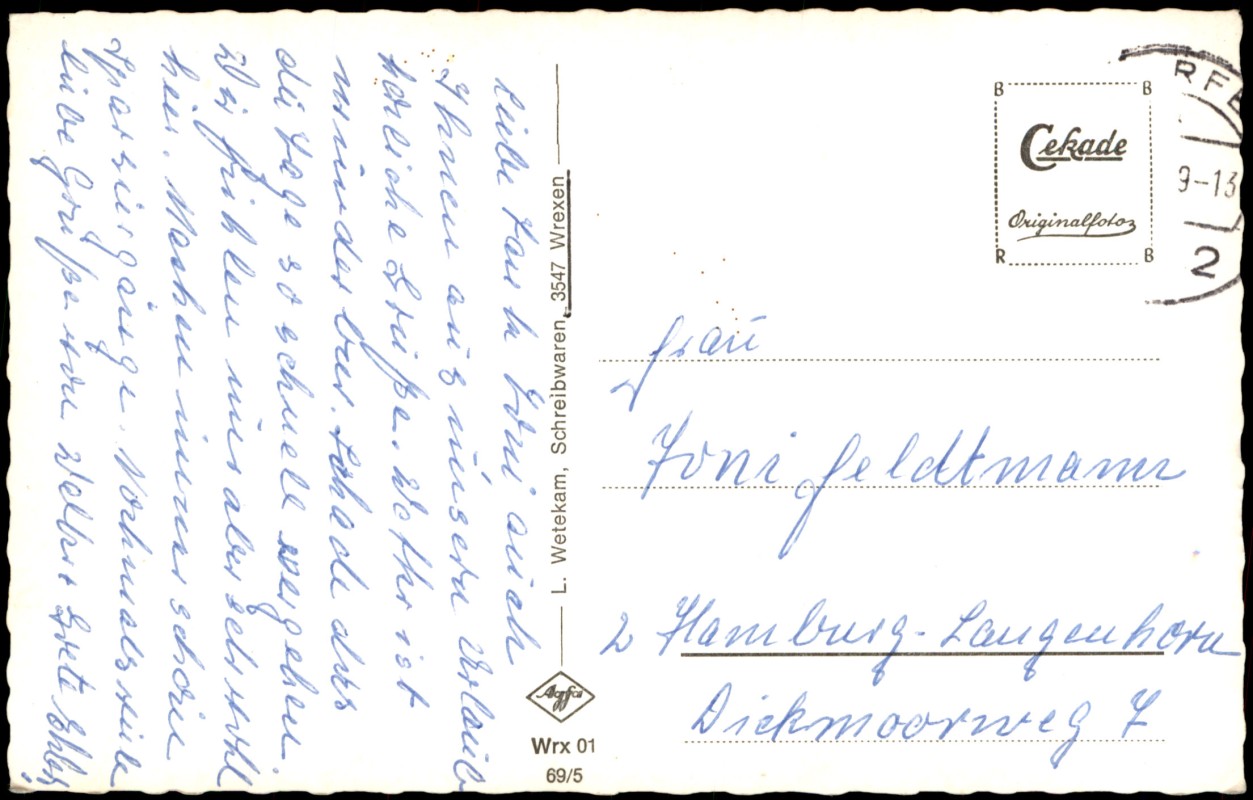 Liebe Tante Toni auch
Ihnen aus unsern Urlaub
herzliche Grüße. Wetter ist
wunderbar. Schade dass
die Tage so schnell vergehen
Wir fühlen uns aber sehr wohl
hier. Machen immer schöne
Spaziergänge. Nochmals viele
liebe Grüße von Walter Grete
L. Wetekam, Schreibwaren, 3547 Wrexen
Agfa
Wrx 01
69/5
B B
Cekade
Originalfoto
R B
9-13
2
Frau
Toni Feldtmann
2 Hamburg-Langenhorn
Diekmoorweg 7